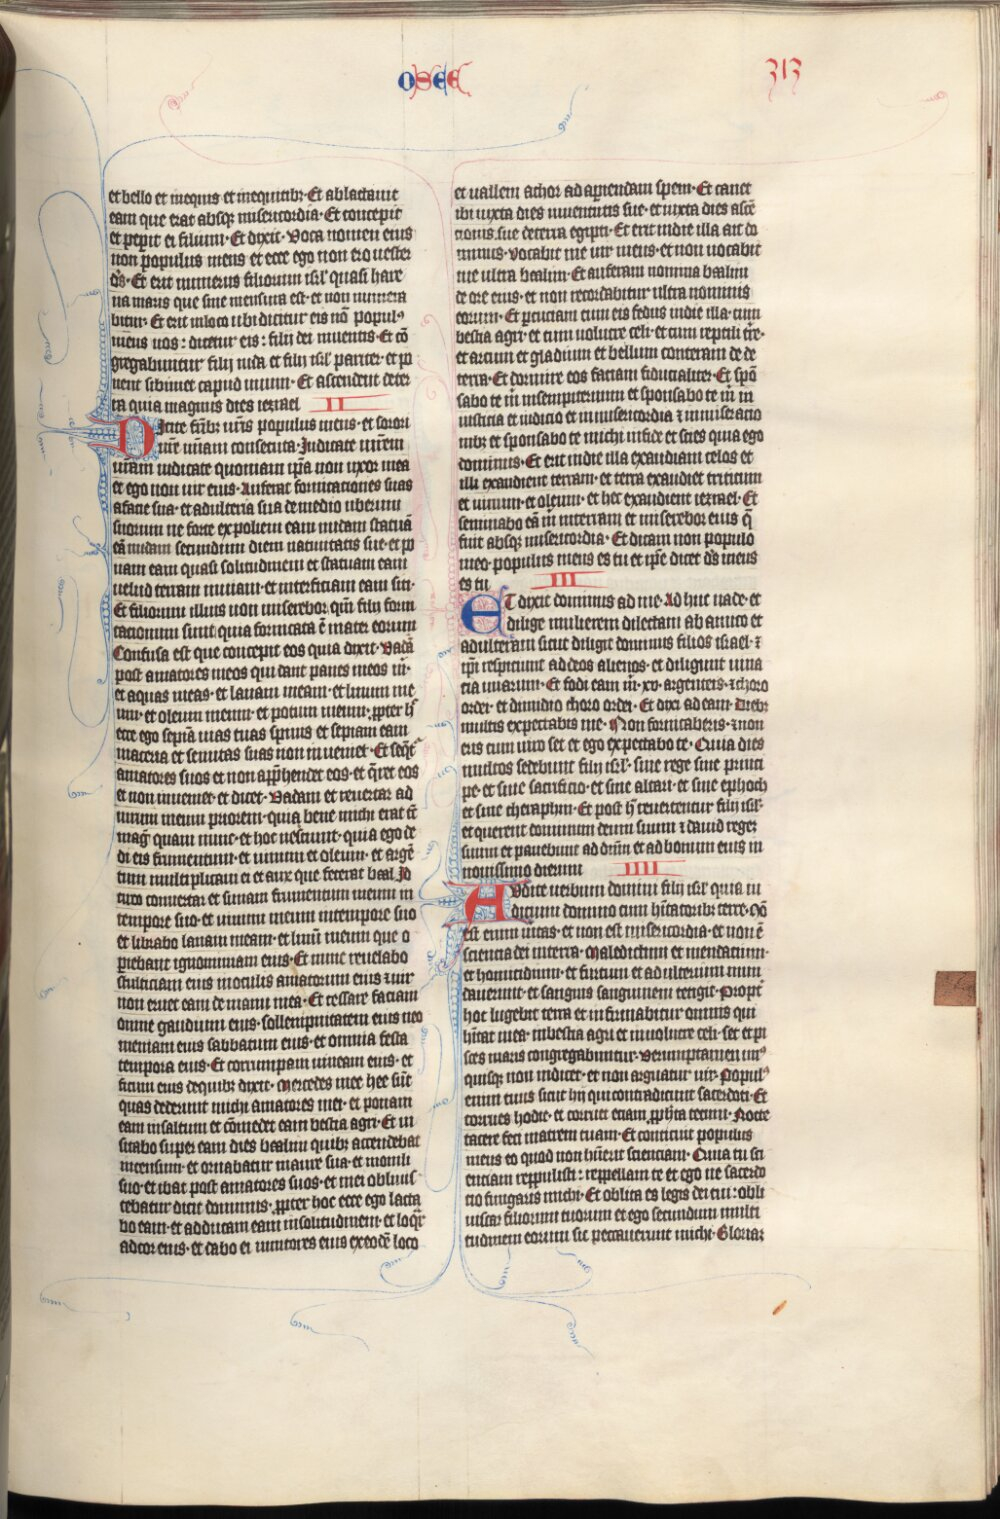 osee
313
et bello et in equis et in equitibꝫ· Et ablactauit
eam que erat absqꝫ misericordia· Et concepit
et peperit ei filium· Et dixit· Voca nomen eius
non populus meus et ecce ego non ero uester
ds̄· Et erit numerus filiorum isrl̄ quasi hare
na maris que sine mensura est· et non numera
bitur· Et erit in loco ubi dicitur eis nō populꝰ
meus uos: dicetur eis: filij dei uiuentis· Et cō
gregabuntur filij iuda et filij isrl̄ pariter· et po
nent sibimet capud unum· Et ascendent de ter
ra quia magnus dies iezrael II
Dicite fr̄ibꝫ ur̄is populus meus· et sorori
ur̄e mīam consecuta· Iudicate mr̄em
ur̄am iudicate quoniam ip̄a non uxor mea
et ego non uir eius· Auferat fornicationes suas
a facie sua· et adulteria sua de medio uberum
suorum ne forte expoliem eam nudam statuā
eā nudam secundum diem natiuitatis sue· et po
nam eam quasi solitudinem et statuam eam
uelud terram inuiam· et interficiam eam siti·
Et filiorum illius non miserebor· qm̄ filij forni
cacionum sunt· quia fornicata ē mater eorum
Confusa est que concepit eos quia dixit· Vadā
post amatores meos qui dant panes meos m̄·
et aquas meas· et lanam meam· et linum me
um· et oleum meum· et potum meum· ꝓpter h̄
ecce ego sepiā uias tuas spinis et sepiam eam
maceria et semitas suas non inueniet· Et seqt̄
amatores suos et non app̄hendet eos· et qr̄et eos
et non inueniet· et dicet· Vadam et reuertar ad
uirum meum priorem· quia bene michi erat tc̄
maḡ quam nunc· et hoc nesciuit· quia ego de
di eis frumentum· et uinum et oleum· et argē
tum multiplicaui ei et aux que fecerat baal Id
circo conuertar et sumam frumentum meum in
tempore suo· et uinum meum in tempore suo
et librabo lanam meam· et linū meum que o
ꝑiebant ignominiam eius· Et nunc reuelabo
stulticiam eius in oculis amatorum eius ⁊ uir
non eruet eam de manu mea· Et cessare faciam
omne gaudium eius· sollempnitatem eius neo
meniam eius sabbatum eius· et omnia festa
tempora eius· Et corrumpam uineam eius· et
ficum eius de quibꝫ dixit· Mercedes mee hee sūt
quas dederunt michi amatores mei· et ponam
eam in saltum et cōmedet eam bestia agri· Et ui
sitabo super eam dies baalim quibꝫ accendebat
incensum· et ornabatur inaure sua· et monili
suo· et ibat post amatores suos· et mei obliuis
cebatur dicit dominus· ꝓpter hoc ecce ego lacta
bo eam· et adducam eam in solitudinem· et loqr̄
ad cor eius· et dabo ei uinitores eius ex eodē loco
et uallem achor ad aperiendam spem· Et canet
ibi iuxta dies iuuentutis sue· et iuxta dies ascē
cionis sue de terra egipti· Et erit in die illa ait do
minus· vocabit me uir meus· et non uocabit
me ultra baalim· Et auferam nomina baalim
de ore eius· et non recordabitur ultra nominis
eorum· Et ꝑcuciam cum eis fedus in die illa· cum
bestia agri· et cum uolucre celi· et cum reptili tr̄e·
et arcum et gladium et bellum conteram de
terra· Et dormire eos faciam fiducialiter· Et spō
sabo te m̄ in sempiternum et sponsabo te m̄ in
iusticia et iudicio et in misericordia ⁊ in miseracio
nibꝫ· et sponsabo te michi in fide· et scies quia ego
dominus· Et erit in die illa exaudiam celos et
illi exaudient terram· et terra exaudiet triticum
et uinum· et oleum· et hec exaudient iezrael· Et
seminabo eā m̄ in terram et miserebor eius q̄
fuit absqꝫ misericordia· Et dicam non populo
meo· populus meus es tu et ip̄e dicet ds̄ meus
es tu III
ET dixit dominus ad me· Adhuc uade· et
dilige mulierem dilectam ab amico et
adulteram sicut diligit dominus filios israel· ⁊
ip̄i respiciunt ad deos alienos· et diligunt uina
cia uuarum· Et fodi eam m̄· xv· argenteis· ⁊ choro
ordei· et dimidio choro ordei· Et dixi ad eam· Diebꝫ
multis expectabis me· Non fornicaberis· ⁊ non
eris cum uiro set et ego expectabo te· Quia dies
multos sedebunt filij isrl̄· sine rege sine princi
pe· et sine sacrificio· et sine altari· et sine ephoch
et sine theraphin· Et post h̄ reuertentur filij isrl̄·
et querent dominum deum suum ⁊ dauid regeꝫ
suum et pauebunt ad dn̄m et ad bonum eius in
nouissimo dierum IIII
Audite uerbum domini filij isrl̄ quia iu
dicium domino cum hitatoribꝫ terre· Nō
est enim ueritas· et non est misericordia· et non ē
sciencia dei in terra· Maledictum et mendacium·
et homicidium· et furtum et adulterium inun
dauerunt· et sanguis sanguinem tetigit· Propt̄
hoc lugebit terra et infirmabitur omnis qui
hitat in ea· in bestia agri et in uolucre celi· set et pi
sces maris congregabuntur· Verumptamen unꝰ
quisqꝫ non iudicet· et non arguatur uir· Populꝰ
enim tuus sicut hij qui contradicunt sacerdoti· Et
corrues hodie· et corruet eciam ꝓpha tecum· Nocte
tacere feci matrem tuam· Et conticuit populus
meus eo quod non habuerit scienciam· Quia tu sci
enciam reppulisti: reppellam te et ego ne sacerdo
cio fungaris michi· Et oblita es legis dei tui: obli
uiscar filiorum tuorum et ego secundum multi
tudinem eorum sic peccauerunt michi· Gloriaꝫ